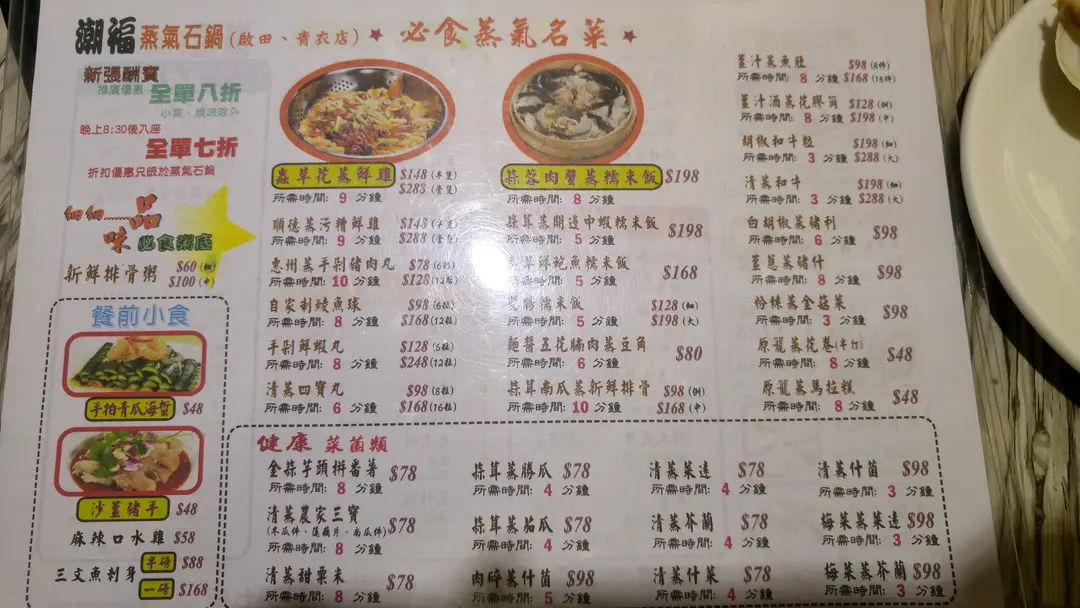 潮福 蒸氣石鍋 (啟田、青衣店) ★ 必食蒸氣名菜 ★
新張酬賓
推廣優惠 全單八折
小菜、燒味除外
晚上8:30後入座
全單七折
折扣優惠只限於蒸氣石鍋
細細......品
味 必食粥底
新鮮排骨粥 $60 (細)
$100 (中)
餐前小食
手拍青瓜海蜇 $48
沙薑豬手 $48
麻辣口水雞 $58
三文魚刺身 半磅 $88
一磅 $168
蟲草花蒸鮮雞 $148 (半隻)
$288 (壹隻)
所需時間: 9 分鐘
順德蒸污糟鮮雞 $148 (半隻)
所需時間: 9 分鐘 $288 (壹隻)
惠州蒸手剁豬肉丸 $78 (6粒)
所需時間: 10 分鐘 $128 (12粒)
自家制鯪魚球 $98 (6粒)
所需時間: 8 分鐘 $168 (12粒)
手剁鮮蝦丸 $128 (6粒)
所需時間: 8 分鐘 $248 (12粒)
清蒸四寶丸 $98 (8粒)
所需時間: 6 分鐘 $168 (16粒)
蒜蓉肉蟹蒸糯米飯 $198
所需時間: 8 分鐘
蒜茸蒸開邊中蝦糯米飯 $198
所需時間: 5 分鐘
茸鮮鮑魚糯米飯 $168
所需時間: 5 分鐘
雙腸糯米飯 $128 (細)
所需時間: 5 分鐘 $198 (大)
麵醬五花腩肉蒸豆角 $80
所需時間: 6 分鐘
蒜茸南瓜蒸新鮮排骨 $98 (例)
所需時間: 10 分鐘 $168 (中)
薑汁蒸魚肚 $98 (8件)
所需時間: 8 分鐘 $168 (16件)
薑汁酒蒸花膠筒 $128 (例)
所需時間: 8 分鐘 $198 (中)
胡椒和牛粒 $198 (細)
所需時間: 3 分鐘 $288 (大)
清蒸和牛 $198 (細)
所需時間: 3 分鐘 $288 (大)
白胡椒蒸豬利 $98
所需時間: 6 分鐘
薑蔥蒸豬什 $98
所需時間: 8 分鐘
粉絲蒸金菇菜 $98
所需時間: 3 分鐘
原籠蒸花卷(半打) $48
所需時間: 8 分鐘
原籠蒸馬拉糕 $48
所需時間: 8 分鐘
健康 菜菌類
金蒜芋頭拼番薯 $78
所需時間: 8 分鐘
清蒸農家三寶 $78
(冬瓜件、蓮藕片、南瓜件)
所需時間: 8 分鐘
清蒸甜粟米 $78
所需時間: 8 分鐘
蒜茸蒸勝瓜 $78
所需時間: 4 分鐘
蒜茸蒸茄瓜 $78
所需時間: 4 分鐘
肉碎蒸什菌 $98
所需時間: 5 分鐘
清蒸菜遠 $78
所需時間: 4 分鐘
清蒸芥蘭 $78
所需時間: 4 分鐘
清蒸什菜 $78
所需時間: 4 分鐘
清蒸什菌 $98
所需時間: 3 分鐘
梅菜蒸菜遠 $98
所需時間: 3 分鐘
梅菜蒸芥蘭 $98
所需時間: 3 分鐘